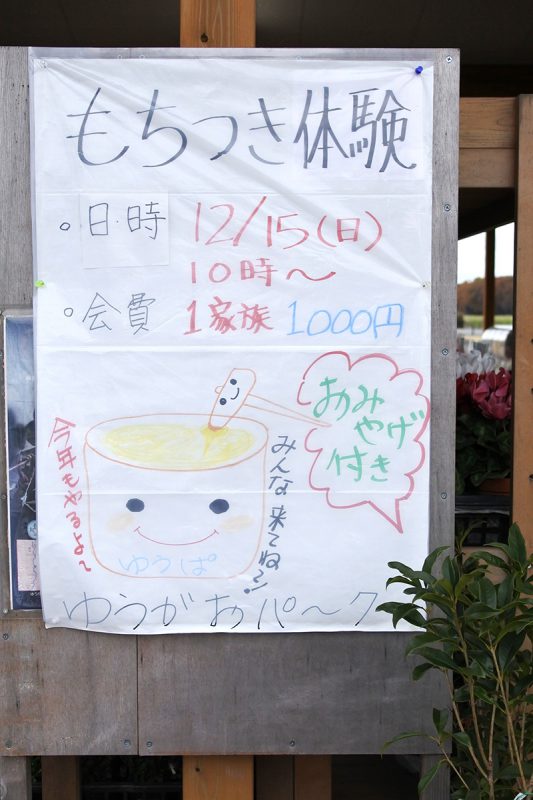 もちつき体験
。日・時 12/15(日)
10時〜
。会費 1家族 1000円
おみやげ付き
今年もやるよ〜
みんな来てね〜!
ゆうぱ
ゆうがおパ〜ク